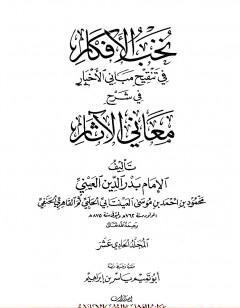 نخب الأفكار
في تنقيح مباني الأخبار
في شرح
معاني الآثار
تأليف
الإمام بدر الدين العيني
محمود بن أحمد بن موسى العينتابي الحلبي ثم القاهري الحنفي
المجلد الحادي عشر
أبو تميم ياسر بن إبراهيم